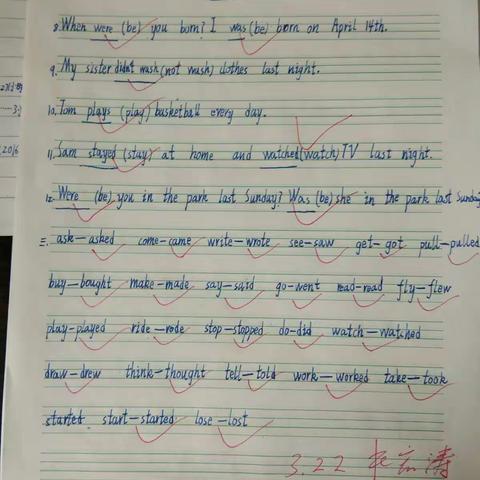 8. When were (be) you born? I was (be) born on April 14th.
9. My sister didn't wash (not wash) clothes last night.
10. Tom plays (play) basketball every day.
11. Sam stayed (stay) at home and watched (watch) TV last night.
12. Were (be) you in the park last Sunday? Was (be) she in the park last Sunday
三. ask—asked come—came write—wrote see—saw get—got pull—pulled
buy—bought make—made say—said go—went read—read fly—flew
play—played ride—rode stop—stopped do—did watch—watched
draw—drew think—thought tell—told work—worked take—took
started. start—started lose—lost
3.22